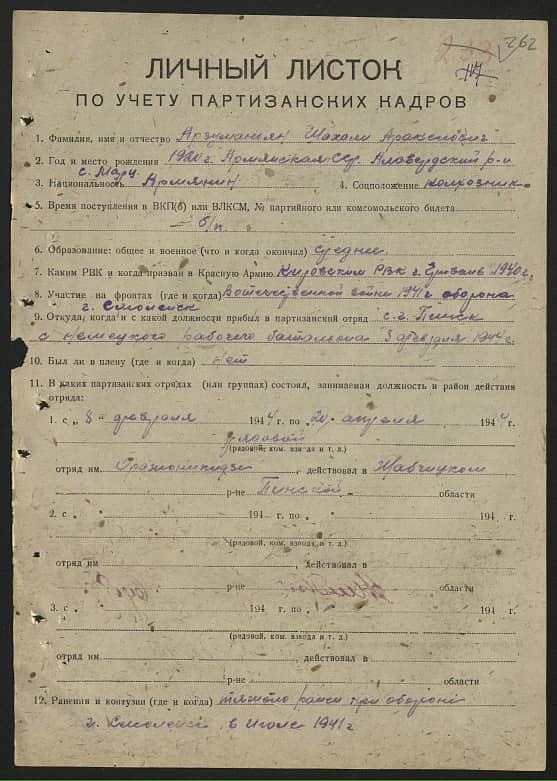 262
ЛИЧНЫЙ ЛИСТОК
ПО УЧЕТУ ПАРТИЗАНСКИХ КАДРОВ
1. Фамилия, имя и отчество Арзуманян Шахали Аракелович
2. Год и место рождения 1920 г. Армянская ССР Алавердский р-н
с. Марц
3. Национальность Армянин 4. Соцположение колхозник
5. Время поступления в ВКП(б) или ВЛКСМ, № партийного или комсомольского билета
— б/п.
6. Образование: общее и военное (что и когда окончил) среднее
7. Каким РВК и когда призван в Красную Армию Кировским РВК г. Ереван 1940 г.
8. Участие на фронтах (где и когда) Вотечественной войны 1941 г оборона
г. Смоленск
9. Откуда, когда и с какой должности прибыл в партизанский отряд с г. Пинск
с немецкого рабочего батальона 8 февраля 1944 г.
10. Был ли в плену (где и когда) Нет
11. В каких партизанских отрядах (или группах) состоял, занимаемая должность и район действия
отряда:
1. с „ 8 " февраля 1944 г. по „ 20 . апреля 1944 г.
рядовой
(рядовой, ком. взвода и т. д.)
отряд им. Орджоникидзе , действовал в Жабчицком
р-не Пинской области
2. с „ 194 г. по „ 194 г.
(рядовой, ком. взвода и т. д.)
отряд им. , действовал в
р-не области
3. с „ 194 г. по „ 194 г.
(рядовой, ком. взвода и т. д.)
отряд им. , действовал в
р-не области
12. Ранения и контузии (где и когда) тяжело ранен при обороне
г. Смоленск в Июле 1941 г